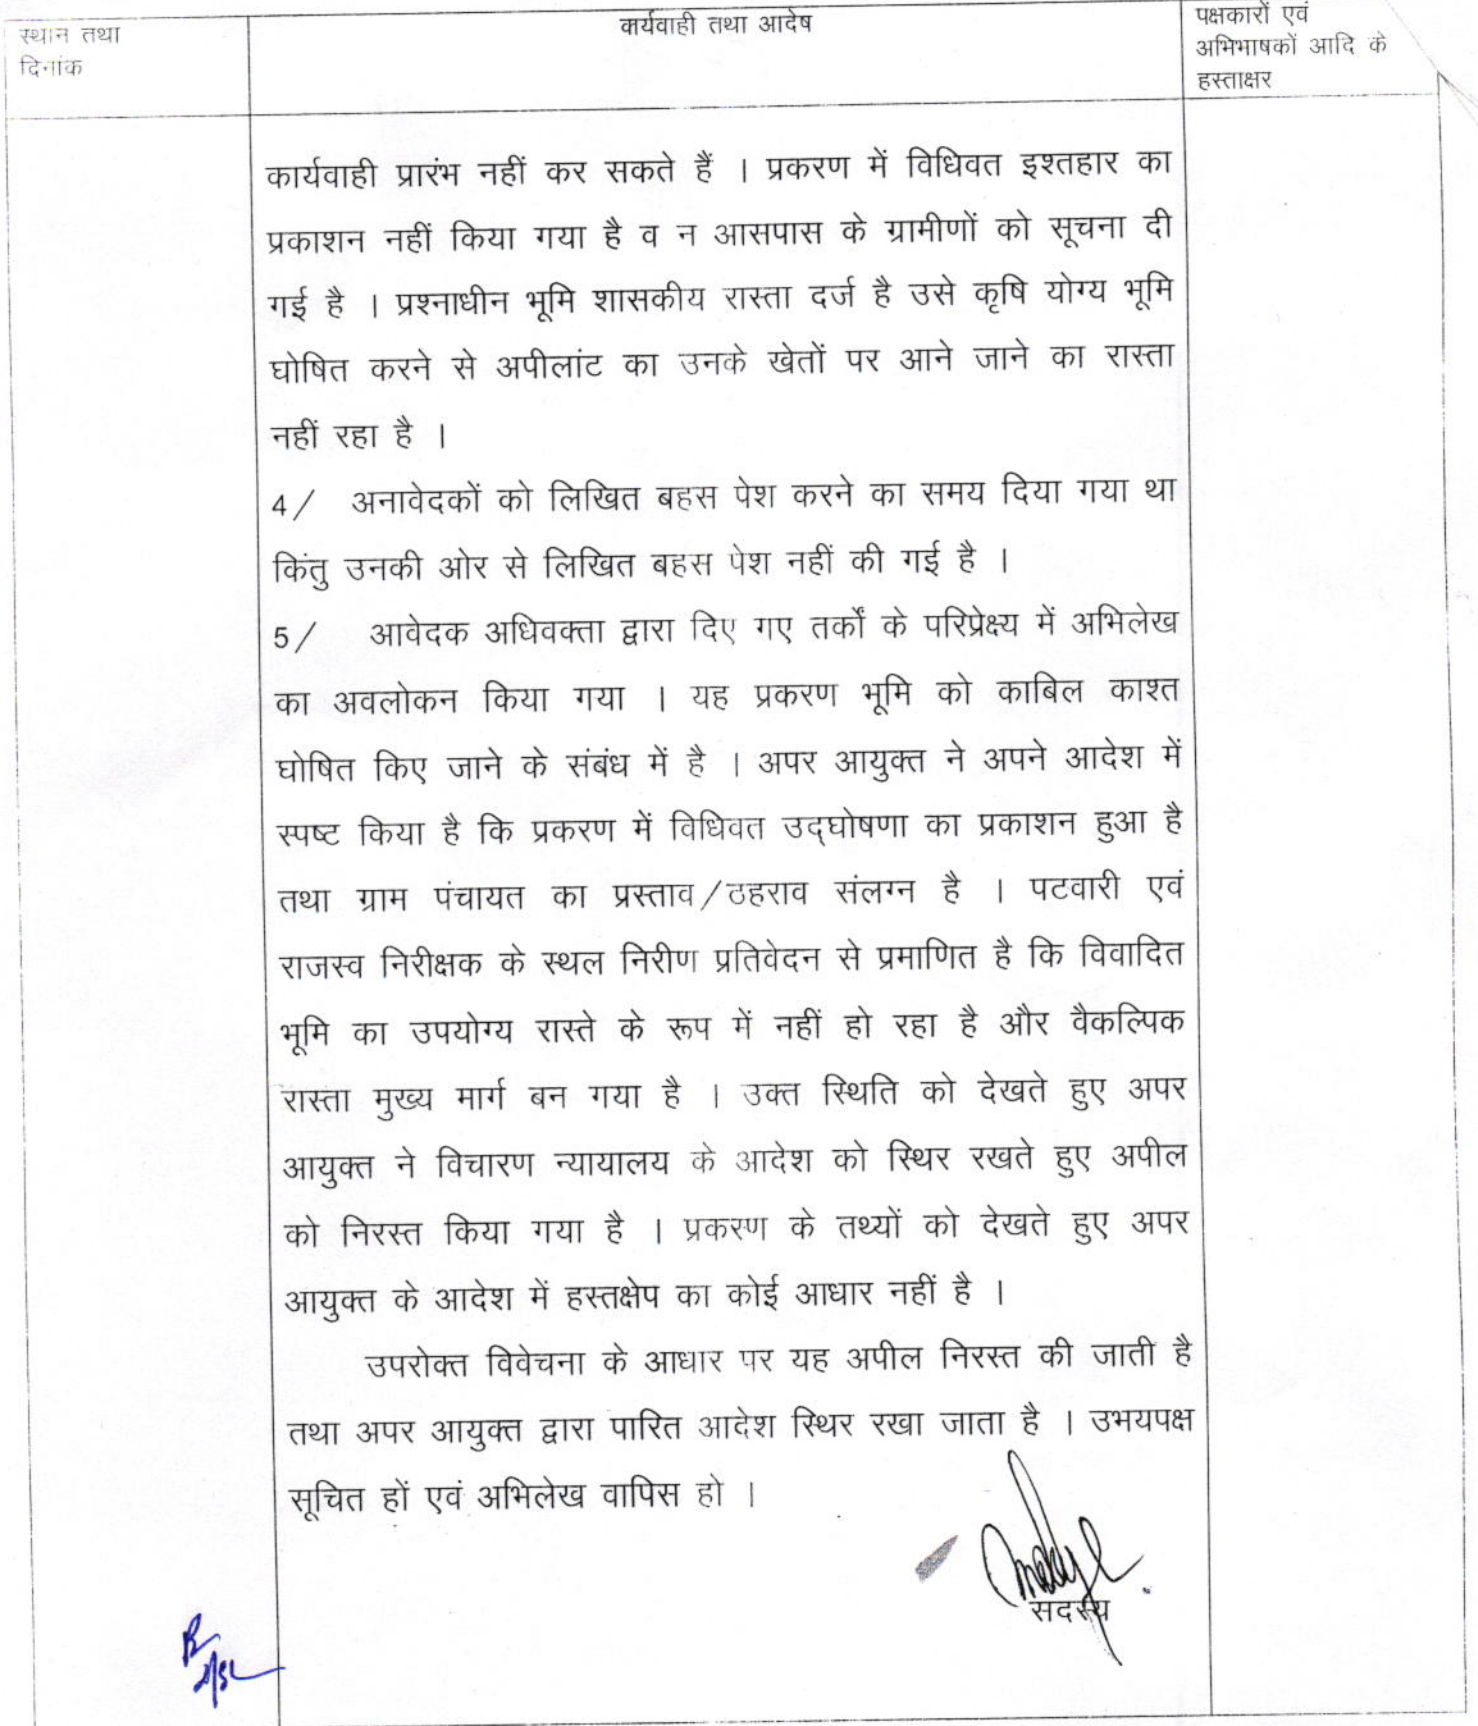 स्थान तथा
दिनांक
कार्यवाही तथा आदेष
पक्षकारों एवं
अभिभाषकों आदि के
हस्ताक्षर
कार्यवाही प्रारंभ नहीं कर सकते हैं । प्रकरण में विधिवत इश्तहार का
प्रकाशन नहीं किया गया है व न आसपास के ग्रामीणों को सूचना दी
गई है । प्रश्नाधीन भूमि शासकीय रास्ता दर्ज है उसे कृषि योग्य भूमि
घोषित करने से अपीलांट का उनके खेतों पर आने जाने का रास्ता
नहीं रहा है ।
4/ अनावेदकों को लिखित बहस पेश करने का समय दिया गया था
किंतु उनकी ओर से लिखित बहस पेश नहीं की गई है ।
5/ आवेदक अधिवक्ता द्वारा दिए गए तर्कों के परिप्रेक्ष्य में अभिलेख
का अवलोकन किया गया । यह प्रकरण भूमि को काबिल काश्त
घोषित किए जाने के संबंध में है । अपर आयुक्त ने अपने आदेश में
स्पष्ट किया है कि प्रकरण में विधिवत उद्घोषणा का प्रकाशन हुआ है
तथा ग्राम पंचायत का प्रस्ताव/ठहराव संलग्न है । पटवारी एवं
राजस्व निरीक्षक के स्थल निरीण प्रतिवेदन से प्रमाणित है कि विवादित
भूमि का उपयोग्य रास्ते के रूप में नहीं हो रहा है और वैकल्पिक
रास्ता मुख्य मार्ग बन गया है । उक्त स्थिति को देखते हुए अपर
आयुक्त ने विचारण न्यायालय के आदेश को स्थिर रखते हुए अपील
को निरस्त किया गया है । प्रकरण के तथ्यों को देखते हुए अपर
आयुक्त के आदेश में हस्तक्षेप का कोई आधार नहीं है ।
उपरोक्त विवेचना के आधार पर यह अपील निरस्त की जाती है
तथा अपर आयुक्त द्वारा पारित आदेश स्थिर रखा जाता है । उभयपक्ष
सूचित हों एवं अभिलेख वापिस हो ।
सदस्य